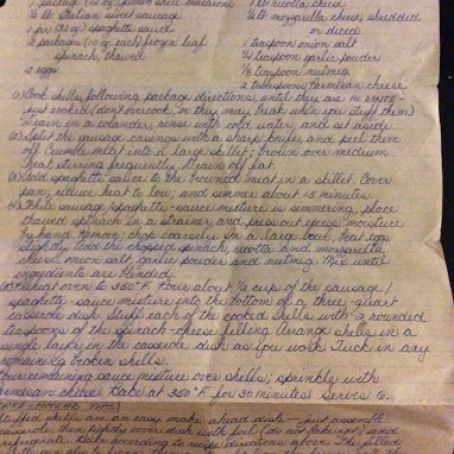 1 package (12 oz) jumbo shell macaroni
1 lb ricotta cheese
½ lb. Italian sweet sausage
½ lb mozzarella cheese, shredded or diced
1 jar (32 oz) spaghetti sauce
1 teaspoon onion salt
2 packages (10 oz each) frozen leaf spinach, thawed
¼ teaspoon garlic powder
⅛ teaspoon nutmeg
2 eggs
2 tablespoons Parmesan cheese
Cook shells, following package directions, until they are AL DENTE -
just cooked (don't overcook, or they may break when you stuff them.)
Drain in a colander, rinse with cold water, and set aside.
Split the sausage casings with a sharp knife, and peel them
off. Crumble meat into a large skillet; brown over medium
heat stirring frequently. Drain off fat.
Add spaghetti sauce to the browned meat in a skillet. Cover
pan; reduce heat to low; and simmer about 15 minutes.
While sausage/spaghetti-sauce mixture is simmering, place
thawed spinach in a strainer and press out excess moisture
by hand. Remove; chop coarsely. In a large bowl, beat eggs
slightly. Add the chopped spinach, ricotta and mozzarella
cheese, onion salt, garlic powder and nutmeg. Mix until
ingredients are blended.
Preheat oven to 350° F. Pour about ½ cup of the sausage/
spaghetti-sauce mixture into the bottom of a three-quart
casserole dish. Stuff each of the cooked shells with 2 rounded
teaspoons of the spinach-cheese filling. Arrange shells in a
single layer in the casserole dish as you work. Tuck in any
remaining broken shells.
Pour remaining sauce mixture over shells; sprinkle with
parmesan cheese. Bake at 350° F. for 30 minutes. Serves 6.
MAKE-AHEAD TIPS:
Stuffed shells are an easy make-ahead dish - just assemble
casserole, then tightly cover dish with foil (do not bake yet) and
refrigerate. Bake according to recipe directions above. The filled